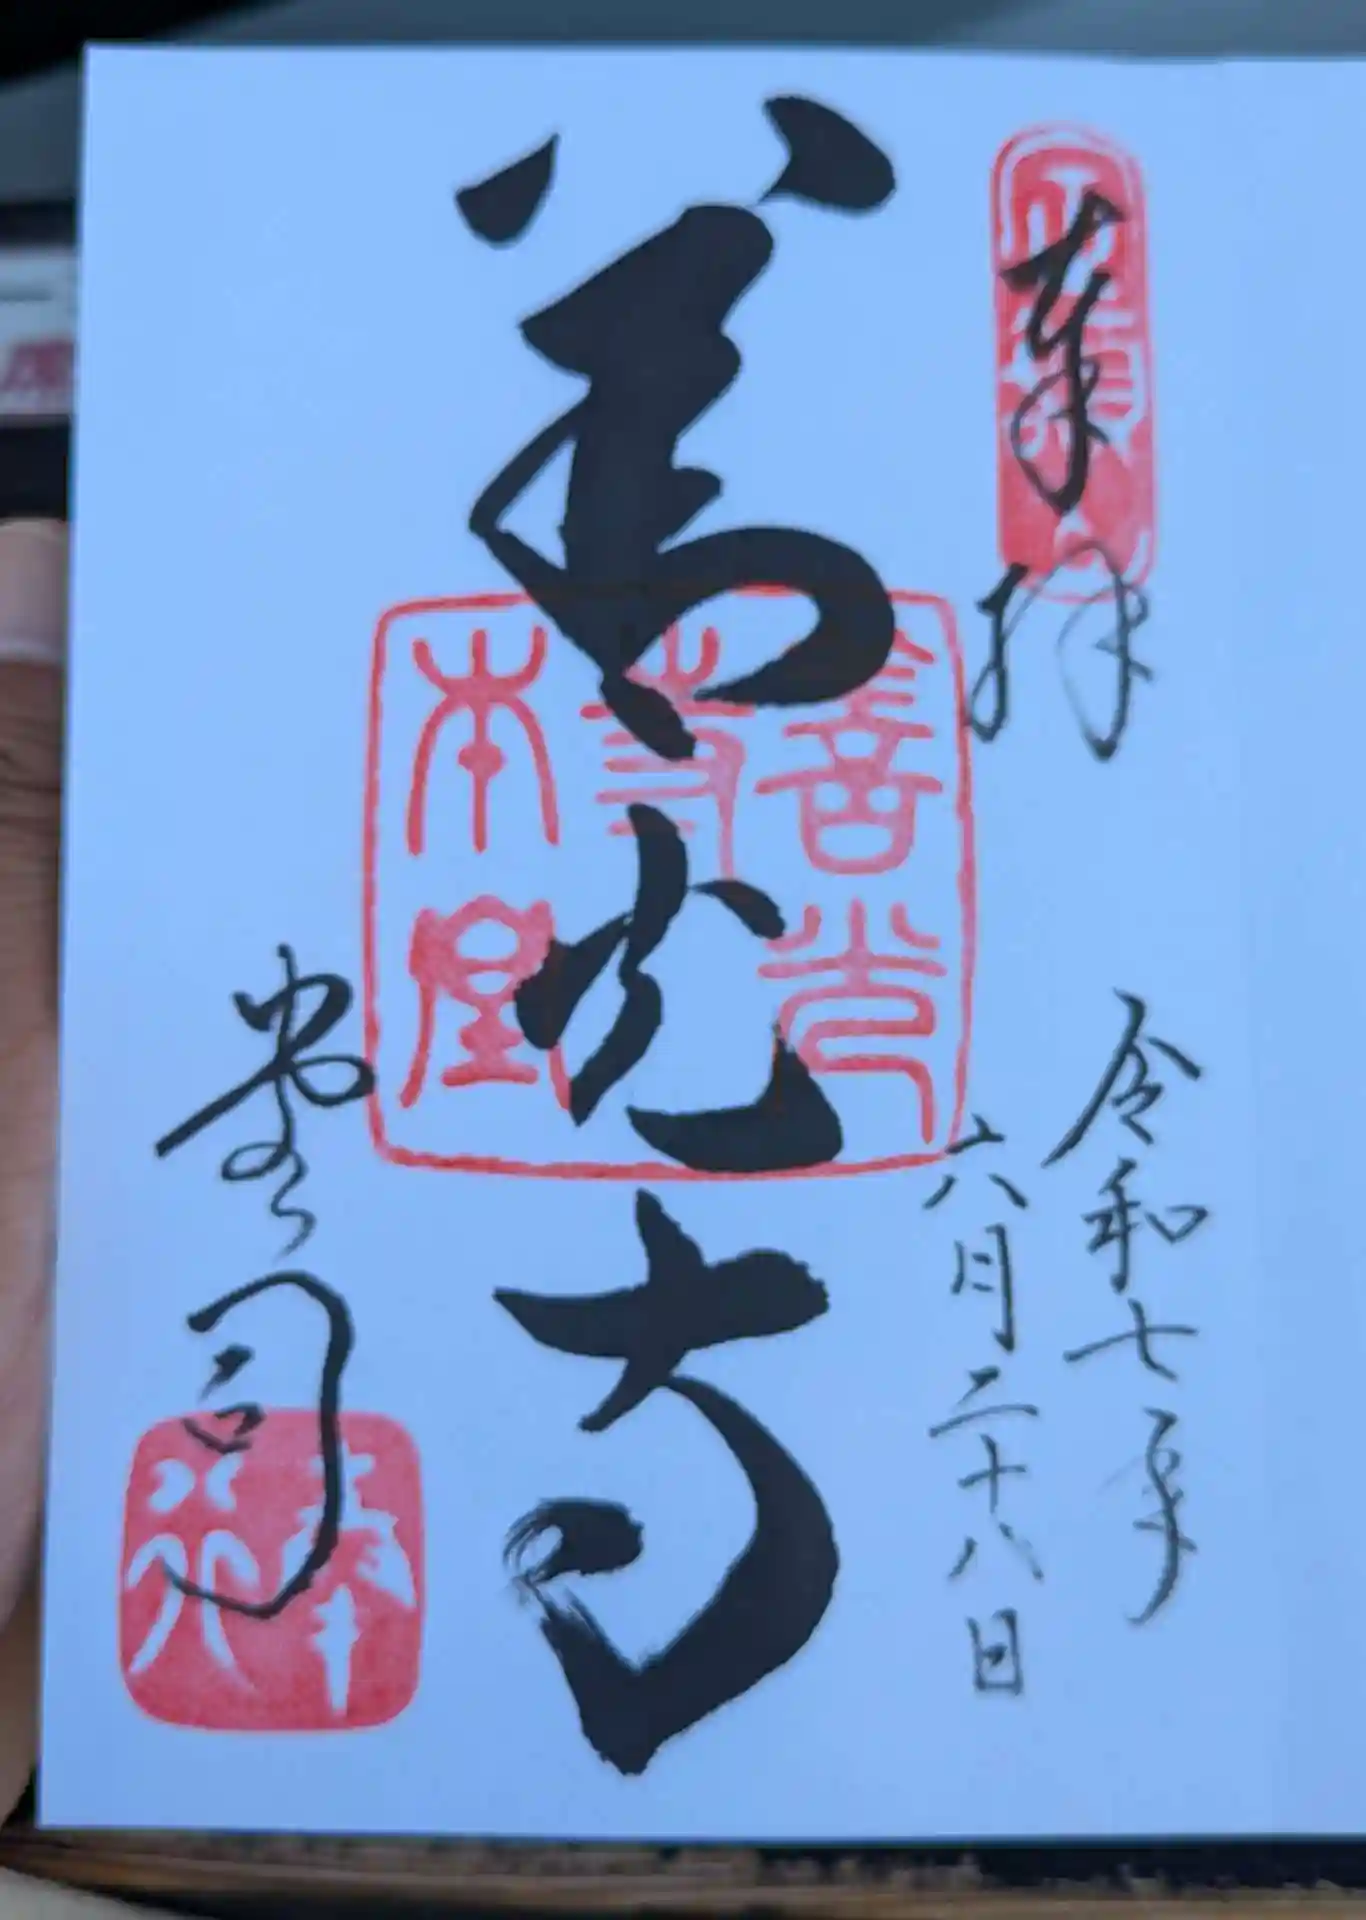 奉拝
令和七年
六月二十八日
善光寺
善光
寺
本堂
堂司
奉行